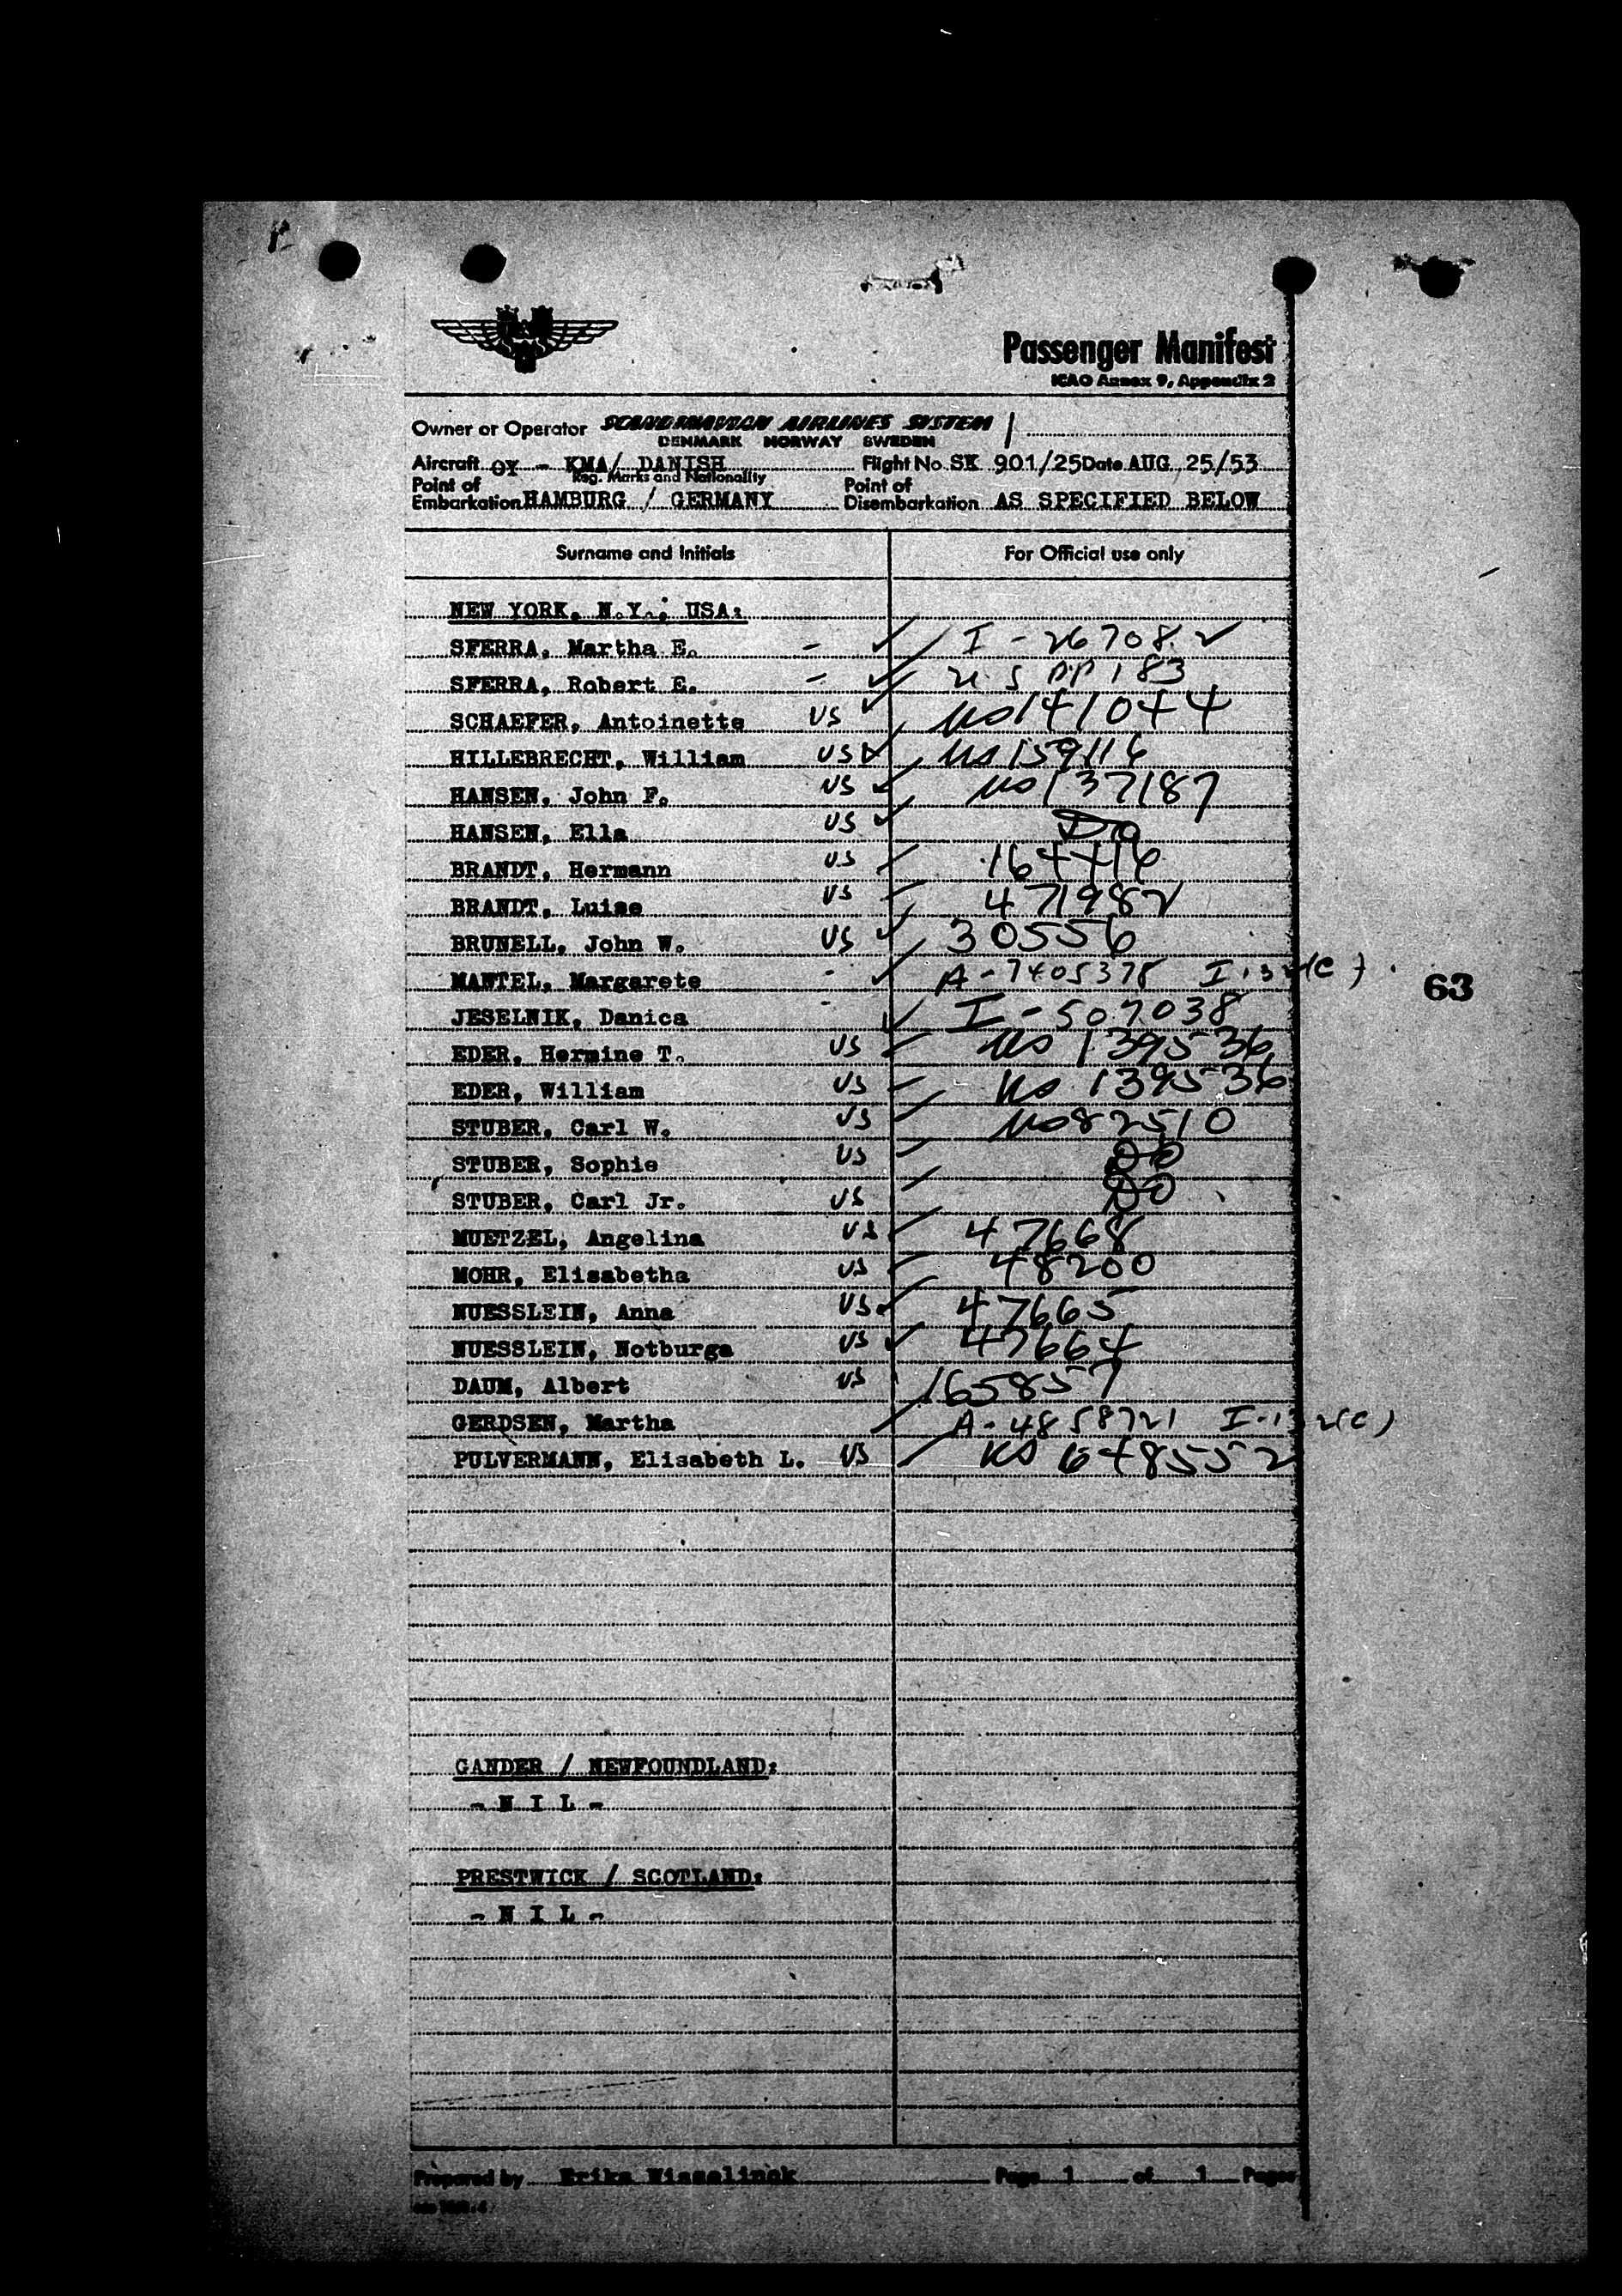 Passenger Manifest
ICAO Annex 9, Appendix 2
Owner or Operator SCANDINAVIAN AIRLINES SYSTEM
DENMARK NORWAY SWEDEN
Aircraft OY - KMA/ DANISH Flight No. SK 901/25 Date AUG. 25/53
Reg. Marks and Nationality
Point of Embarkation HAMBURG / GERMANY Point of Disembarkation AS SPECIFIED BELOW
Surname and Initials For Official use only
NEW YORK, N.Y., USA:
SFERRA, Martha E. - ✓ I - 26708 ✓
SFERRA, Robert E. - ✓ U.S PP 183
SCHAEFER, Antoinette US ✓ no 141044
HILLEBRECHT, William US ✓ no 159116
HANSEN, John F. US ✓ no 137187
HANSEN, Ella US ✓ Do
BRANDT, Hermann US 164416
BRANDT, Luise US 471982
BRUNELL, John W. US ✓ 30556
MANTEL, Margarete - ✓ A-7405378 I-132(C)
63
JESELNIK, Danica - ✓ I-507038
EDER, Hermine T. US no 139536
EDER, William US no 139536
STUBER, Carl W. US no 82510
STUBER, Sophie US Do
STUBER, Carl Jr. US Do
MUETZEL, Angelina US 47668
MOHR, Elisabetha US 48200
NUESSLEIN, Anna US ✓ 47665
NUESSLEIN, Notburga US ✓ 47664
DAUM, Albert US 165857
GERDSEN, Martha A-4858721 I-132(C)
PULVERMANN, Elisabeth L. US no 648552
GANDER / NEWFOUNDLAND:
- N I L -
PRESTWICK / SCOTLAND:
- N I L -
Prepared by Erika Wisselinck Page 1 of 1 Pages